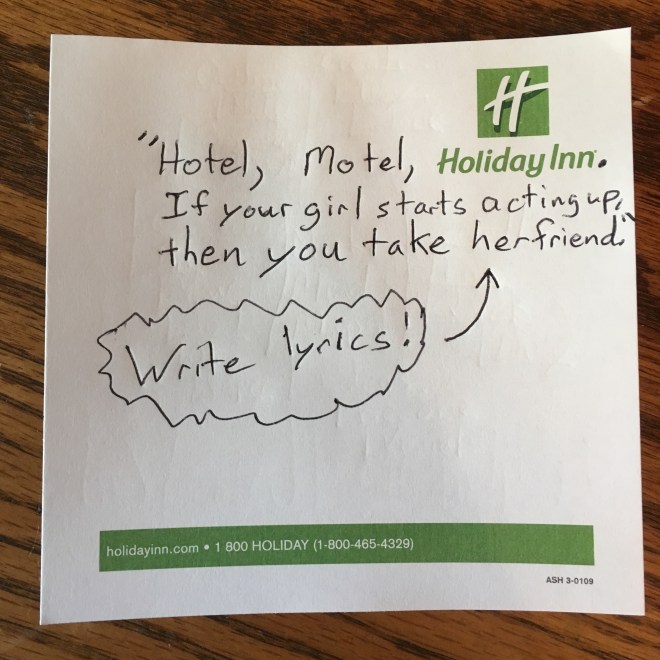 "Hotel, Motel, Holiday Inn.
If your girl starts acting up,
then you take her friend."
Write lyrics!
holidayinn.com • 1 800 HOLIDAY (1-800-465-4329)
ASH 3-0109